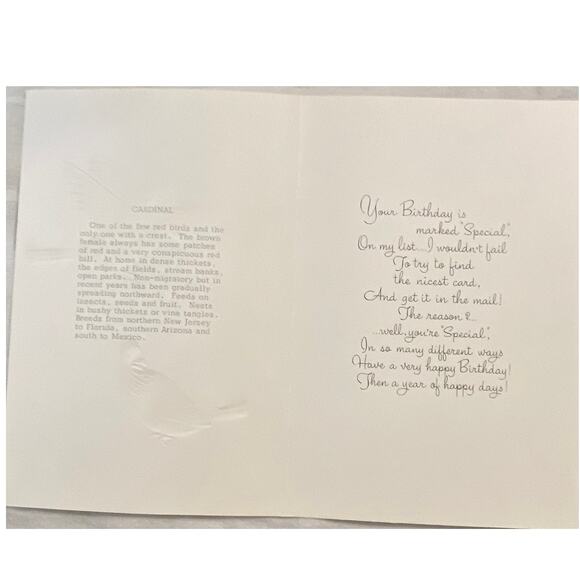 CARDINAL
One of the few red birds and the
only one with a crest. The brown
female always has some patches
of red and a very conspicuous red
bill. At home in dense thickets,
the edges of fields, stream banks,
open parks. Non-migratory but in
recent years has been gradually
spreading northward. Feeds on
insects, seeds and fruit. Nests
in bushy thickets or vine tangles.
Breeds from northern New Jersey
to Florida, southern Arizona and
south to Mexico.
Your Birthday is
marked "Special,"
On my list...I wouldn't fail
To try to find
the nicest card,
And get it in the mail!
The reason?...
...well, you're "Special,"
In so many different ways
Have a very happy Birthday!
Then a year of happy days!